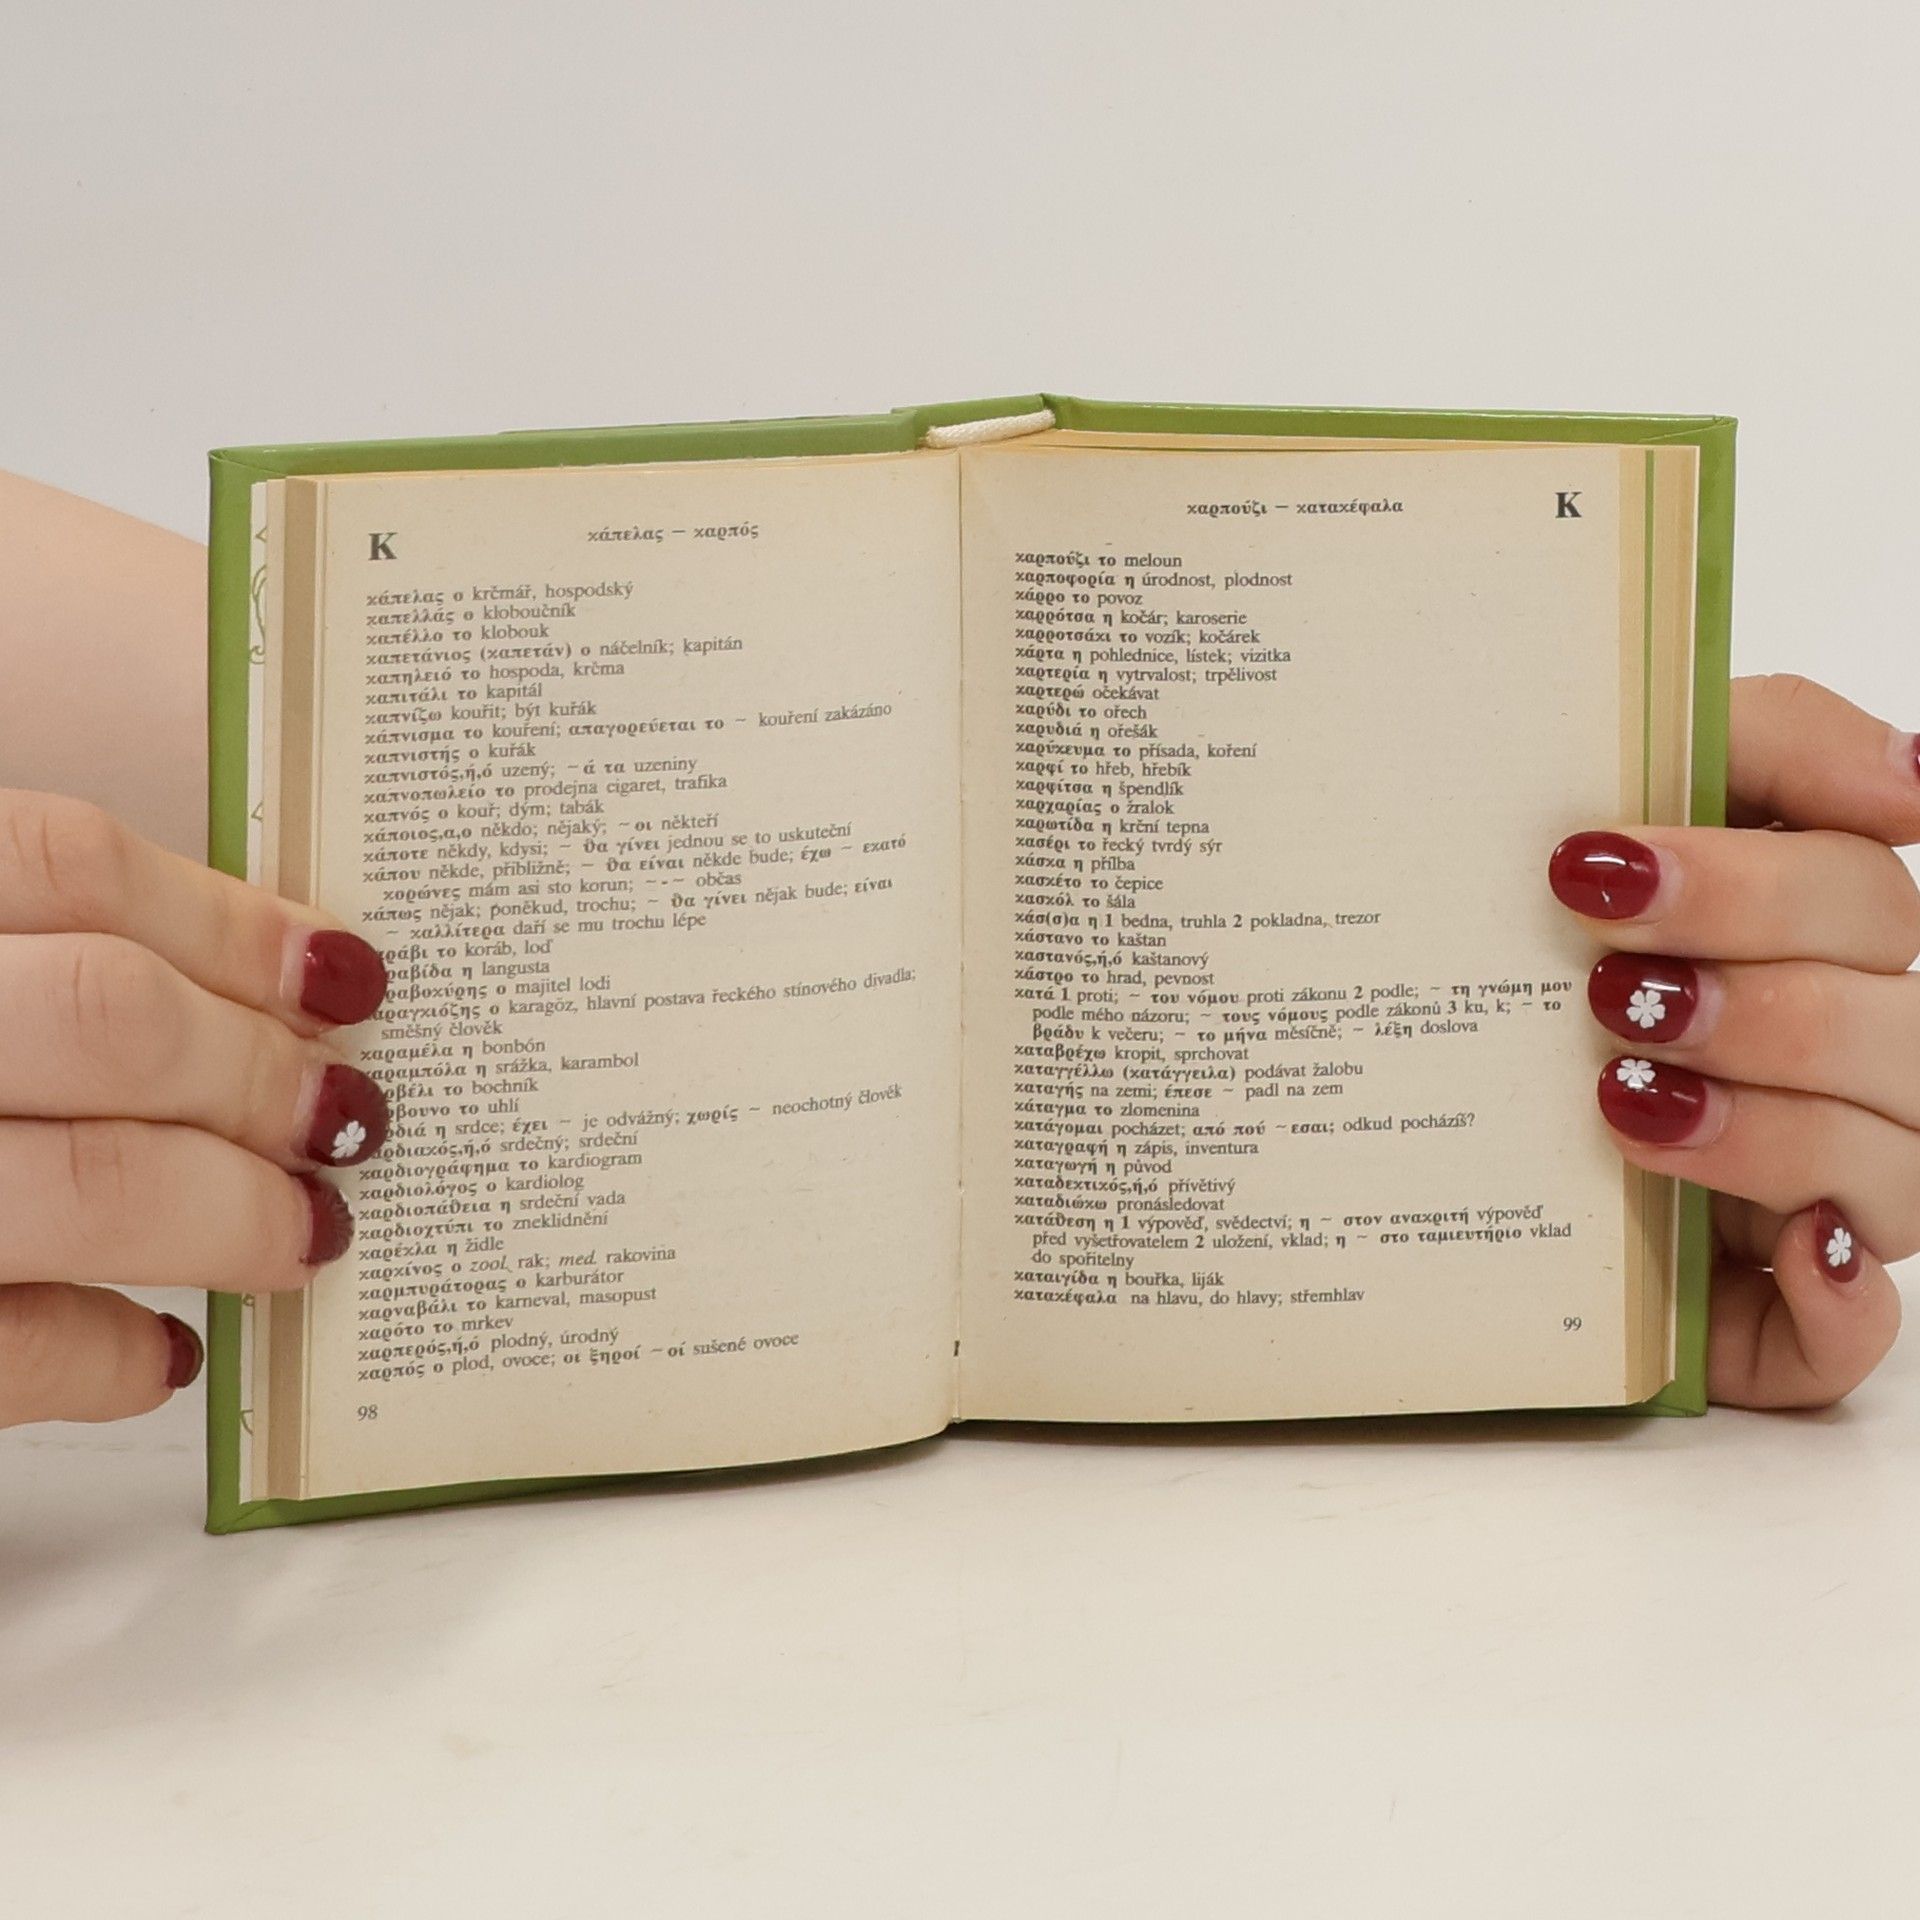 K
κάπελας – καρπός
κάπελας ο krčmář, hospodský
καπελλάς ο kloboučník
καπέλλο το klobouk
καπετάνιος (καπετάν) ο náčelník; kapitán
καπηλειό το hospoda, krčma
καπιτάλι το kapitál
καπνίζω kouřit; být kuřák
κάπνισμα το kouření; απαγορεύεται το ~ kouření zakázáno
καπνιστής ο kuřák
καπνιστός,ή,ό uzený; ~ά τα uzeniny
καπνοπωλείο το prodejna cigaret, trafika
καπνός ο kouř; dým; tabák
κάποιος,α,ο někdo; nějaký; ~οι někteří
κάποτε někdy, kdysi; ~ θα γίνει jednou se to uskuteční
κάπου někde, přibližně; ~ θα είναι někde bude; έχω ~ εκατό
κορώνες mám asi sto korun; ~-~ občas
κάπως nějak; poněkud, trochu; ~ θα γίνει nějak bude; είναι
~ καλλίτερα daří se mu trochu lépe
ράβι το koráb, loď
ραβίδα η langusta
ραβοκύρης ο majitel lodi
αραγκιόζης ο karagöz, hlavní postava řeckého stínového divadla;
směšný člověk
καραμέλα η bonbón
καραμπόλα η srážka, karambol
ρβέλι το bochník
ρβουνο το uhlí
ρδιά η srdce; έχει ~ je odvážný; χωρίς ~ neochotný člověk
αρδιακός,ή,ό srdečný; srdeční
καρδιογράφημα το kardiogram
καρδιολόγος ο kardiolog
καρδιοπάθεια η srdeční vada
καρδιοχτύπι το zneklidnění
καρέκλα η židle
καρκίνος ο zool. rak; med. rakovina
καρμπυράτορας ο karburátor
καρναβάλι το karneval, masopust
καρότο το mrkev
καρπερός,ή,ό plodný, úrodný
καρπός ο plod, ovoce; οι ξηροί ~οί sušené ovoce
98
καρπούζι – κατακέφαλα
K
καρπούζι το meloun
καρποφορία η úrodnost, plodnost
κάρρο το povoz
καρρότσα η kočár; karoserie
καρροτσάκι το vozík; kočárek
κάρτα η pohlednice, lístek; vizitka
καρτερία η vytrvalost; trpělivost
καρτερώ očekávat
καρύδι το ořech
καρυδιά η ořešák
καρύκευμα το přísada, koření
καρφί το hřeb, hřebík
καρφίτσα η špendlík
καρχαρίας ο žralok
καρωτίδα η krční tepna
κασέρι το řecký tvrdý sýr
κάσκα η přilba
κασκέτο το čepice
κασκόλ το šála
κάσ(σ)α η 1 bedna, truhla 2 pokladna, trezor
κάστανο το kaštan
καστανός,ή,ό kaštanový
κάστρο το hrad, pevnost
κατά 1 proti; ~ του νόμου proti zákonu 2 podle; ~ τη γνώμη μου
podle mého názoru; ~ τους νόμους podle zákonů 3 ku, k; ~ το
βράδυ k večeru; ~ το μήνα měsíčně; ~ λέξη doslova
καταβρέχω kropit, sprchovat
καταγγέλλω (κατάγγειλα) podávat žalobu
καταγής na zemi; έπεσε ~ padl na zem
κάταγμα το zlomenina
κατάγομαι pocházet; από πού ~εσαι; odkud pocházíš?
καταγραφή η zápis, inventura
καταγωγή η původ
καταδεκτικός,ή,ό přívětivý
καταδιώκω pronásledovat
κατάθεση η 1 výpověď, svědectví; η ~ στον ανακριτή výpověď
před vyšetřovatelem 2 uložení, vklad; η ~ στο ταμιευτήριο vklad
do spořitelny
καταιγίδα η bouřka, liják
κατακέφαλα na hlavu, do hlavy; střemhlav
99